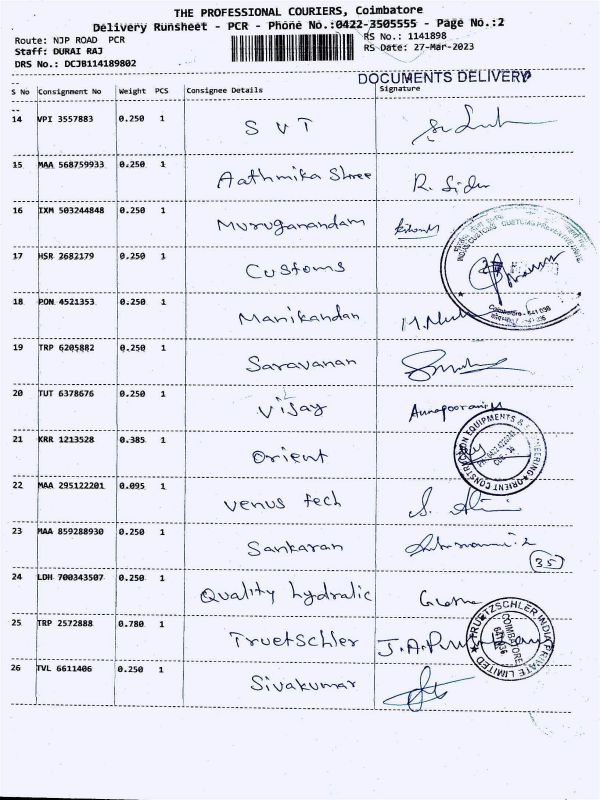 THE PROFESSIONAL COURIERS, Coimbatore
Delivery Runsheet - PCR - Phone No.:0422-3505555 - Page No.:2
Route: NJP ROAD PCR
RS No.: 1141898
Staff: DURAI RAJ
RS Date: 27-Mar-2023
DRS No.: DCJB114189802
DOCUMENTS DELIVERY
S No Consignment No Weight PCS Consignee Details Signature
14 VPI 3557883 0.250 1 SVT
15 MAA 568759933 0.250 1 Aathmika Shree R. Sidu
16 IXM 503244848 0.250 1 Muruganandam
17 HSR 2682179 0.250 1 Customs
INDIAN CUSTOMS CUSTOMS PREVENTIVE UNIT
Coimbatore - 641 036
18 PON 4521353 0.250 1 Manikandan
19 TRP 6205882 0.250 1 Saravanan
20 TUT 6378676 0.250 1 Vijay Annapoorani
21 KRR 1213528 0.385 1 Orient
ORIENT CONSTRUCTION EQUIPMENTS & ENGINEERING
22 MAA 295122201 0.095 1 Venus tech
23 MAA 859288930 0.250 1 Sankaran
35
24 LDH 700343507 0.250 1 Quality hydralic
25 TRP 2572888 0.780 1 Truetschler
TRUETZSCHLER INDIA PRIVATE LIMITED
COIMBATORE
641 036
26 TVL 6611406 0.250 1 Sivakumar